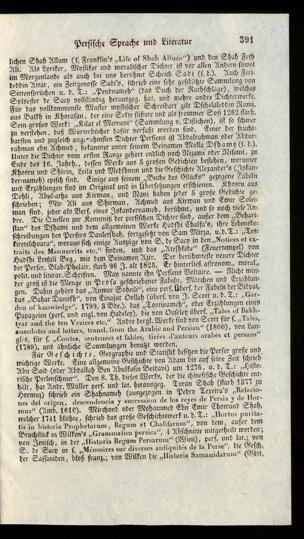 Persische Sprache und Literatur 391
lichen Shah Allum (s. Franklin's „Life of Shah Allum") und den Shah Feth
Ali. Als Lyriker, Mystiker und moralischer Dichter ist vor allen Andern sowol
im Morgenlande als auch bei uns berühmt Scheich Sadi (s.d.). Auch Feri-
deddin Attar, ein Zeitgenosse Sadi's, schrieb eine sehr geschätzte Sammlung von
Sittensprüchen u. d. T.: „Pendnameh" (das Buch der Rathschläge), welches
Sylvester de Sacy vollständig herausgeg. hat, und mehre andre Dichterwerke.
Für das vollkommenste Muster mystischer Schreibart gilt Dschelaleddin Rumi,
aus Balkh in Khorasan, der eine Sekte stiftete und als frommer Sofi 1262 starb.
Sein großes Werk: „Kitab el Mesnavi" (Sammlung v. Distichen), ist so schwer
zu verstehen, daß Wörterbücher dafür verfaßt worden sind. Einer der frucht-
barsten und zugleich angenehmsten Dichter Persiens ist Abdalrahman oder Abdur-
rahman ebn Achmed, bekannter unter seinem Beinamen Molla Dshami (s. d.).
Unter die Dichter vom ersten Range gehört endlich noch Nizami oder Nisami, zu
Ende des 16. Jahrh., dessen Werke aus 5 großen Gedichten bestehen, worunter
Khosru und Shirin, Leila und Metshnun und die Geschichte Alexander's (Iskander-
dernameh) episch sind. Einige aus seinem „Buche des Glücks" gezogene Fabeln
und Erzählungen sind im Original und in Übersetzungen erschienen. Khosru aus
Dehli, Abulfatha aus Kirman, und Nani haben jeder 5 große Gedichte ge-
schrieben; Mir Ali aus Shirwan, Achmed aus Kirman und Emir Solei-
man sind, jeder als Verf. eines Iskandernameh, berühmt, und so noch viele And-
re. Die Quellen zur Kenntniß der persischen Dichter sind, außer dem „Beharistan"
des Dshami und dem allgemeinen Werke Hadschi Khalfa's, ihre Lebensbe-
schreibungen des Persers Dauletshah, fortgesetzt von Sam Mirza, u. d. T.: „Tez-
kiretolchoara", woraus sich einige Auszüge von S. de Sacy in den „Notices et ex-
traits des Manuscrits etc." finden, und das „Ateshkede" (Feuertempel) von
Hadshi Lotfali Beg, mit dem Beinamen Azir. Der berühmteste neuere Dichter
der Perser, starb 36 J. alt 1825. Er hinterließ astronom., moral.,
polit. und literar. Schriften. Man nannte ihn Persiens Voltaire. — Nicht min-
der groß ist die Menge in Prosa geschriebener Fabeln, Märchen und Erzählun-
gen. Dahin gehört das „Anwar Soheili", eine pers. Übers. der Fabeln des Bidpai,
das „Bahar Danush", von Einajut Oollah (übers. von J. Scott u. d. T.: „Gar-
den of knowledge", 1799, 3 Bde.), das „Tootinameh", oder Erzählungen eines
Papageien (pers. und engl. von Hadeley), die von Ouseley übers. „Tales of Bakh-
tyar and the ten Veziers etc." Andre dergl. Werke sind von Scott für s. „Tales,
anecdotes and letters, transl. from the Arabic and Persian" (1800), von Lan-
glès, für s. „Contes, sentences et fables, tirées d'auteurs arabes et persans"
(1788), und ähnliche Sammlungen benutzt worden.
Für Geschichte, Geographie und Statistik besitzen die Perser große und
wichtige Werke. Eine allgemeine Geschichte von Adam bis auf seine Zeit schrieb
Abu Said (oder Abdallah Ben Abulkasin Beitavi) um 1276, u. d. T.: „Histo-
rische Perlenschnur". Den 8. Th. dieses Werks, der die chinesische Geschichte ent-
hält, hat Andr. Müller pers. und lat. herausgeg. Turan Shah (starb 1377 zu
Hormuz) schrieb ein Shahnameh (ausgezogen in Pedro Texeira's „Relacio-
nes del origen, descendencia y succession de los reyes de Persia y de Hor-
muz" (Antw. 1610). Mirchond oder Mohammed Ebn Emir Chowand Shah,
welcher 1741 blühte, schrieb das große Geschichtswerk u. d. T.: „Hortus purita-
tis in historia Prophetarum, Regum et Chalifarum", von dem, außer dem
Bruchstück in Wilken's „Grammatica persica", 4 Abschnitte mitgetheilt worden;
von Jenisch, in der „Historia Regum Persarum" (Wien), pers. und lat.; von
S. de Sacy in s. „Mémoires sur diverses antiquités de la Perse", die Gesch.
der Sassaniden, bloß franz.; von Wilken die „Historia Samanidarum" (Gött.